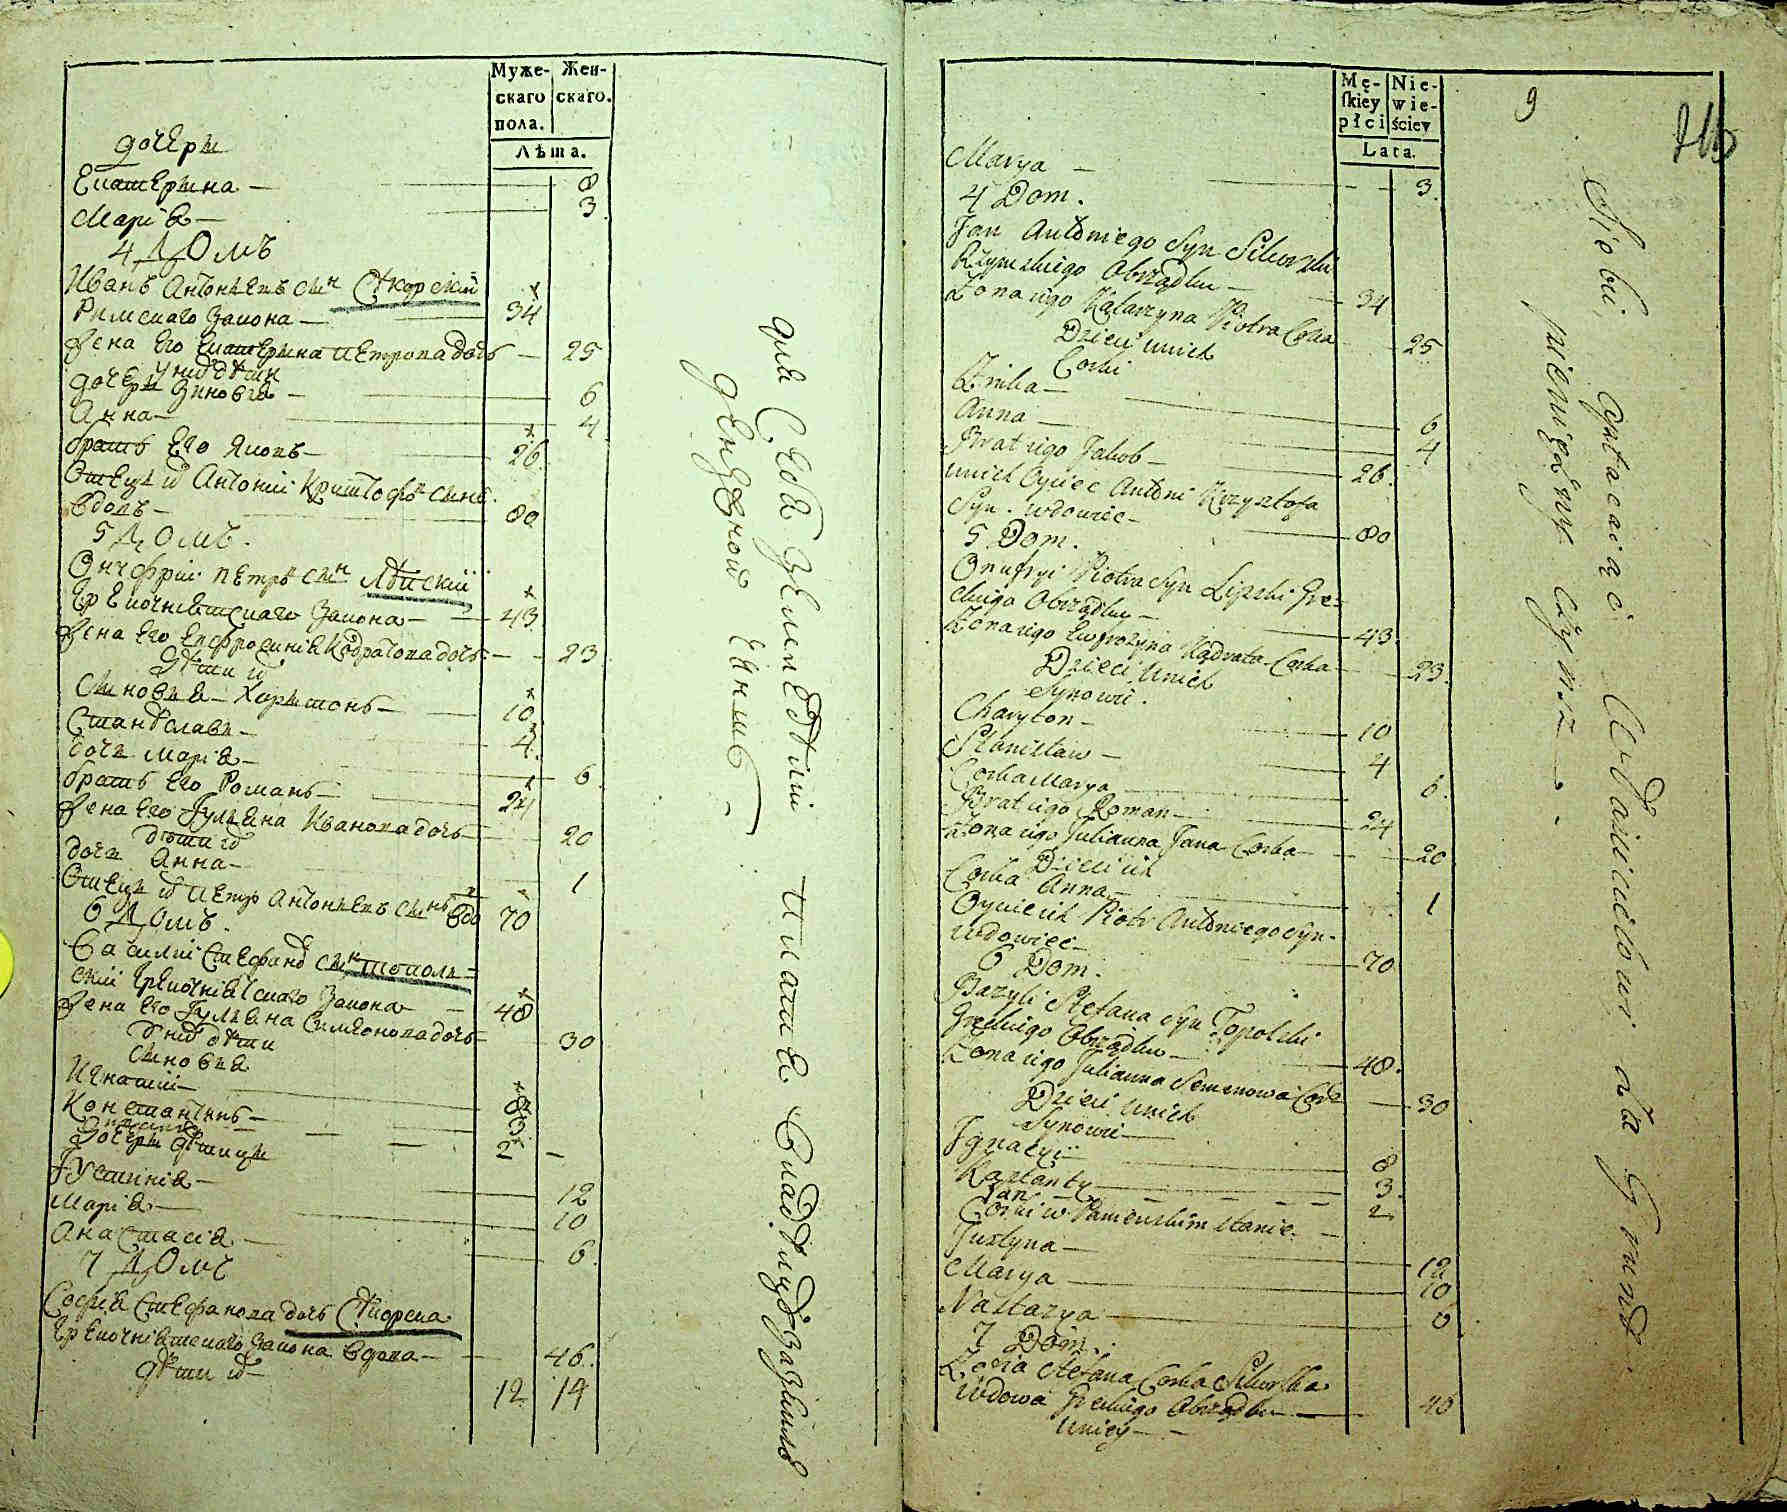 Муже-
скаго
пола.
Жен-
скаго.
Лѣта.
дочери
Екатерина — 8
Маріа — 3
4 Домъ
Иванъ Антониевъ сын Сѣкорскій
Римскаго Закона — 34
Жена его Екатерина Петрова дочъ — 25
У них дѣти
дочери Зиновіа — 6
Анна — 4
братъ его Яковъ — 26
Отецъ их Антоній Криштофовъ сынъ
вдовъ — 80
5 Домъ.
Онуфрій Петровъ сын Лѣпскій
Грекоуніатскаго Закона — 43
Жена его Ефросиніа Кодратова дочъ — 23
Дѣти их
Сыновья — Харитонъ — 10
Станѣславъ — 4
дочь Маріа — 6
братъ его Романъ — 24
Жена его Гулиана Иванова дочъ — 20
дѣти их
дочь Анна — 1
Отецъ их Петръ Антониевъ сынъ вдо 70
6 Домъ.
Василій Стефанов сын Тополь=
скій Грекоуніатскаго Закона — 48
Жена его Гулиана Симионова дочъ — 30
У них дѣти
Сыновья
Игнатій — 8
Константинъ — 3
2 —
Дочери дѣвицы
Іустиніа — 12
Маріа — 10
Анастасіа — 6
7 Домъ
Софиа Стефанова дочь Сѣкорска
Грекоуніатскаго Закона вдова — 46.
дѣти их —
12 14
для Себя Земледѣлій Платя Владѣлцу За Землю
денежной Чиншъ
Mę-
ſkiey
płci
Nie-
wie-
ściey
Lata.
9
Marya — 3
4 Dom.
Jan Antoniego Syn Sikorski
Rzymskiego Obrządku — 34
Zona iego Katarzyna Piotra Corka 25
Dzieci unich
Corki
Zinka — 6
Anna — 4
Brat iego Jakob — 26.
unich Oyciec Antoni Krzysztofa
Syn. wdowiec — 80
5 Dom.
Onufryi Piotra Syn Lipski Gre=
ckiego Obrządku — 43
Zona iego Eufrozyna Kądrata Corka — 23.
Dzieci Unich
Synowie.
Charyton — 10
Stanisław — 4
Corka Marya — 6.
Brat iego Roman — 24
Zona iego Julianna Jana Corka — 20
Dzieci ich
Corka Anna — 1
Oyciec ich Piotr Antoniego syn.
wdowiec — 70
6 Dom.
Bazyli Stefana syn Topolski
Greckiego Obrządku — 48.
Zona iego Julianna Semenowa Corka — 30
Dzieci Unich
Synowie —
Ignacyi — 8
Kastanty — 3
Jan — 2
Corki w Panienskim stanie. —
Justyna — 12
Marya — 10
Nastazya — 6
7 Dom.
Zofia Stefana Corka Sikorska
Wdowa Greckiego Obrządku — 46
Unicy —
Siebie, opłacaiąc Właścicielowi za Grunt
pieniężny czynsz —.